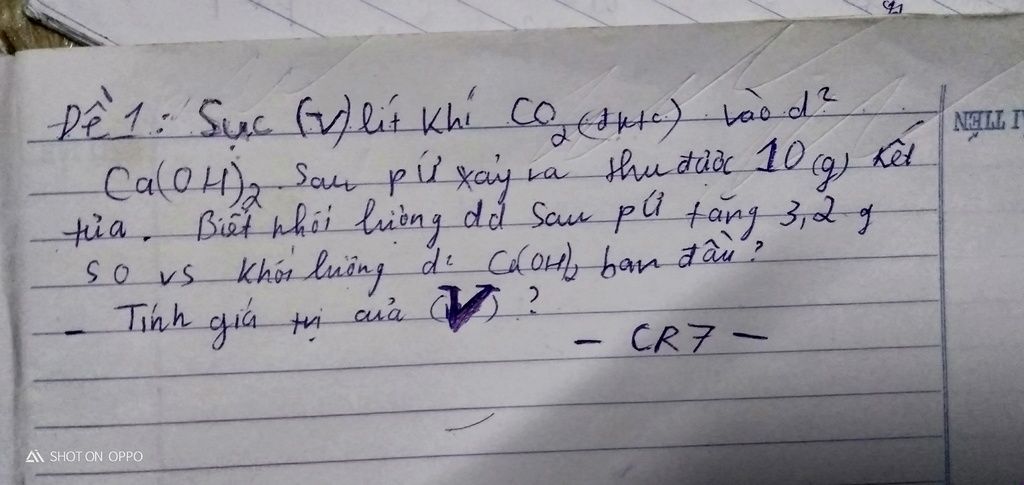 Đề 1: Sục (V) lít khí CO2 (đktc) vào d²
Ca(OH)2. Sau pứ xảy ra thu được 10 (g) kết
tủa. Biết khối lượng dd sau pứ tăng 3,2 g
so vs khối lượng d² Ca(OH)2 ban đầu?
- Tính giá trị của (V) ?
- CR7 -
SHOT ON OPPO